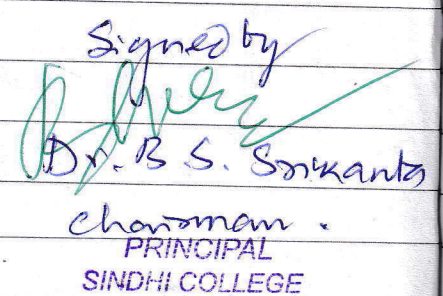 Signed by
Dr. B. S. Srikanta
Chairman.
PRINCIPAL
SINDHI COLLEGE